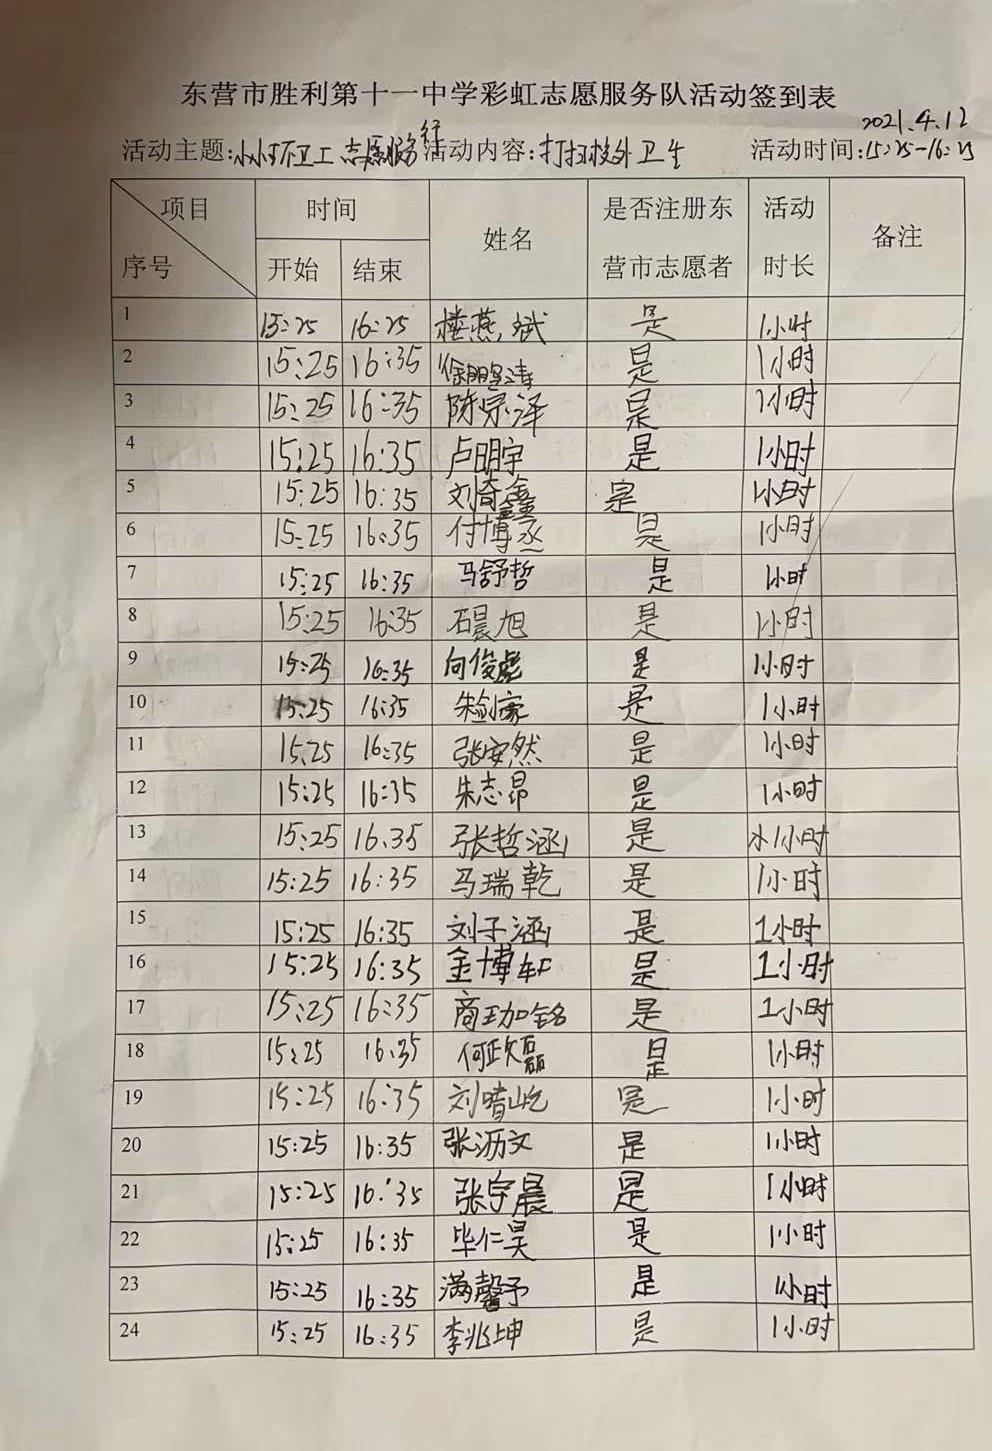 东营市胜利第十一中学彩虹志愿服务队活动签到表
2021.4.12
活动主题:小小环卫工志愿服务行 活动内容:打扫校外卫生 活动时间:15:25-16:25
项目 时间 姓名 是否注册东营市志愿者 活动时长 备注
序号 开始 结束
1 15:25 16:25 楼燕斌 是 1小时
2 15:25 16:35 徐 是 1小时
3 15:25 16:35 陈宗泽 是 1小时
4 15:25 16:35 卢明宇 是 1小时
5 15:25 16:35 刘奇鑫 是 1小时
6 15:25 16:35 付博丞 是 1小时
7 15:25 16:35 马舒哲 是 1小时
8 15:25 16:35 石晨旭 是 1小时
9 15:25 16:35 向俊彪 是 1小时
10 15:25 16:35 朱剑豪 是 1小时
11 15:25 16:35 张安然 是 1小时
12 15:25 16:35 朱志昂 是 1小时
13 15:25 16:35 张哲涵 是 1小时
14 15:25 16:35 马瑞乾 是 1小时
15 15:25 16:35 刘子涵 是 1小时
16 15:25 16:35 金博轩 是 1小时
17 15:25 16:35 商珈铭 是 1小时
18 15:25 16:35 何政磊 是 1小时
19 15:25 16:35 刘晴屹 是 1小时
20 15:25 16:35 张沥文 是 1小时
21 15:25 16:35 张宇晨 是 1小时
22 15:25 16:35 毕仁昊 是 1小时
23 15:25 16:35 满馨予 是 1小时
24 15:25 16:35 李兆坤 是 1小时